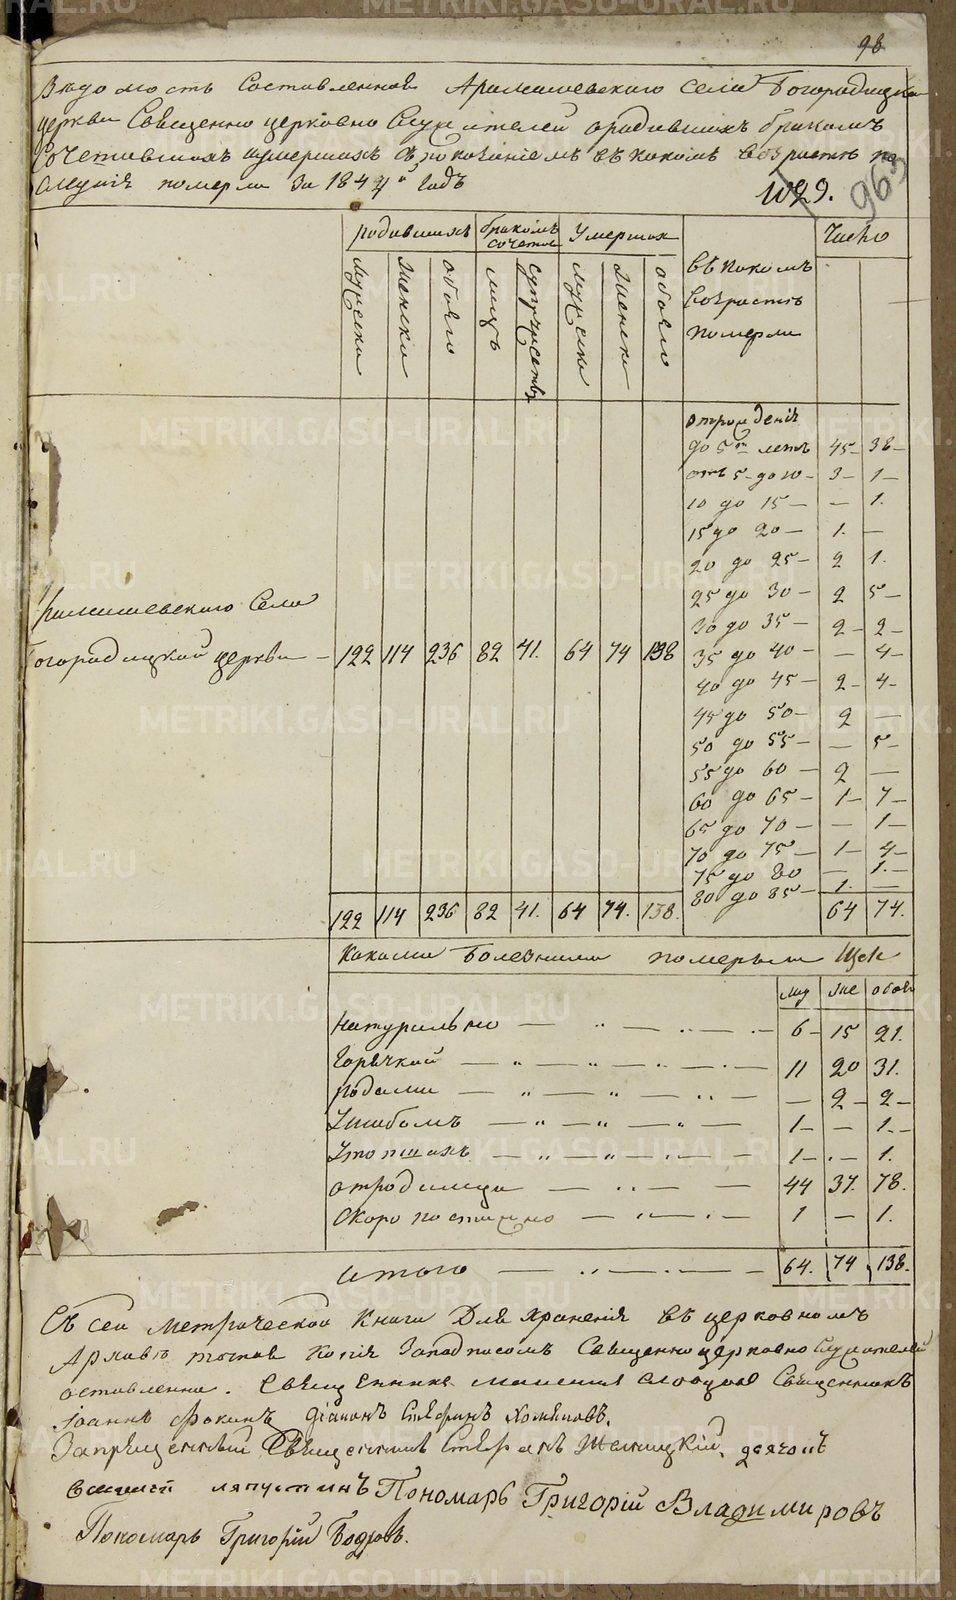 98
Ведомость Составленная Арамашевскаго села Богородицкой
церкви Священно церковно Служителей ородившихъ бракомъ
Сочетавшихъ иумершихъ споказаніемъ въ какомъ возрасте по
следніе померли За 184 й Годъ
963
№29.
родившихъ
бракомъ сочетав
Умерших
Число
мужска
женска
обоего
лицъ
супружествъ
мужска
женска
обоего
въ какомъ
возрасте
померли
отрожденія
до 5ти летъ 45 – 38 –
отъ 5 – до 10 – 3 – 1 –
10 до 15 – – 1.
15 до 20 – 1. –
20 до 25 – 2 1.
25 до 30 – 2 5 –
30 до 35 – 2 – 2 –
35 до 40 – – 4 –
40 до 45 – 2 – 4 –
45 до 50 – 2 –
50 до 55 – – 5 –
55 до 60 – 2 –
60 до 65 – 1 – 7 –
65 до 70 – – 1 –
70 до 75 – 1 – 4 –
75 до 80 – 1. –
80 до 85 – 1. –
рамашевскаго Села
Богородицкой церкви – 122 114 236 82 41. 64 74 138
122 114 236 82 41. 64 74. 138. 64 74.
Какими Болезнями померли
муж же обоего
Натурально – 6 – 15 21.
Горячкой – 11 20 31.
родами – – 2 – 2 –
Ушибомъ – 1 – – 1. –
Утопшихъ – 1 – – 1.
отродимца – 44 37. 78.
Скоропостижно – 1 – 1.
итого – 64. 74 138.
Съ сей метрической книги Для хранения въ церковномъ
Архиве точная копія Заподписомъ Священно церковно служителей
оставленна. Священникъ
Іоаннъ Фокинъ діаконъ Стефанъ
Запрещенный Священникъ Стефанъ дьячокъ
ляпустинъ Пономарь Григорій Владимировъ
Пономарь Григорій